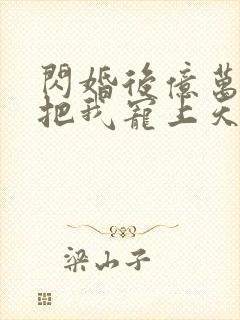 閃婚後億萬
把我寵上天
梁山子